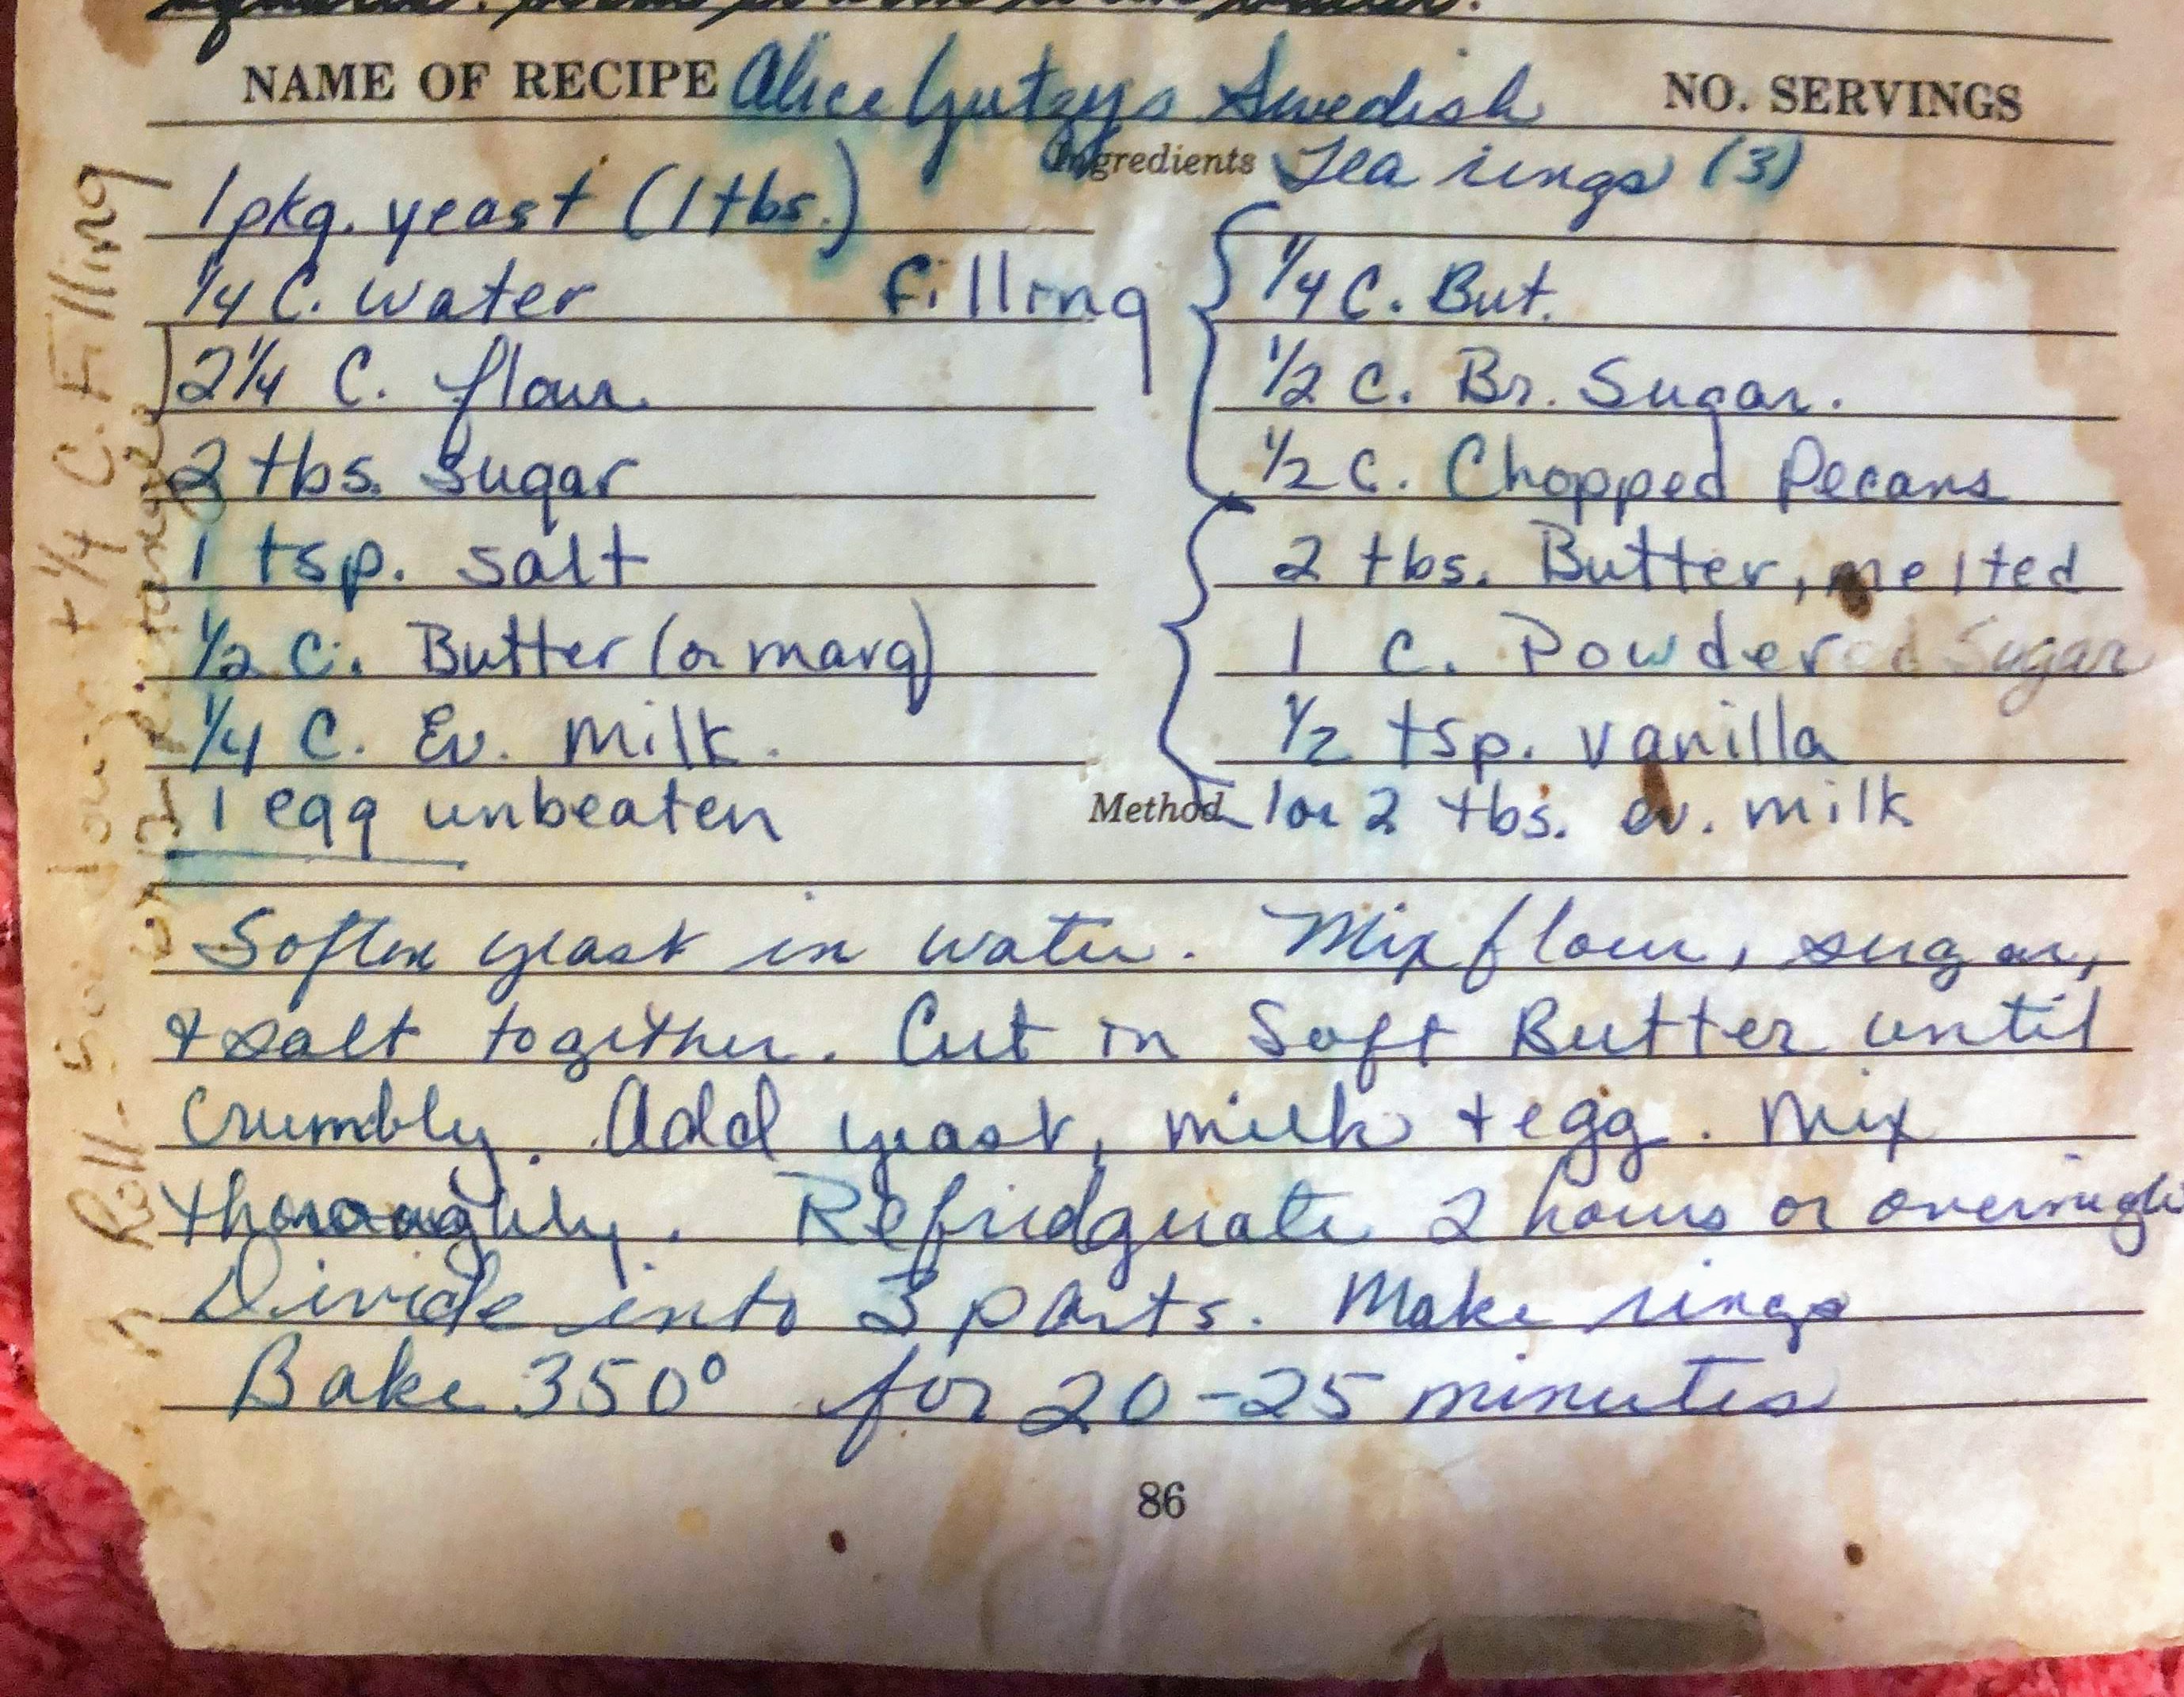 NAME OF RECIPE Alice Gutzys Swedish NO. SERVINGS
Ingredients Tea rings (3)
1 pkg. yeast (1 tbs.)
1/4 C. water
2 1/4 C. flour
2 tbs. sugar
1 tsp. salt
1/2 C. Butter (or marg)
1/4 C. Ev. Milk.
1 egg unbeaten
filling
1/4 C. But.
1/2 C. Br. Sugar.
1/2 C. Chopped Pecans
2 tbs. Butter, melted
1 C. Powdered Sugar
1/2 tsp. vanilla
Method 1 or 2 tbs. ev. milk
Soften yeast in water. Mix flour, sugar,
& salt together. Cut in Soft Butter until
crumbly. Add yeast, milk + egg. Mix
thoroughly. Refridgerate 2 hours or overnight
Divide into 3 parts. Make rings
Bake 350° for 20-25 minutes
86
Roll - + 1/4 C. Filling